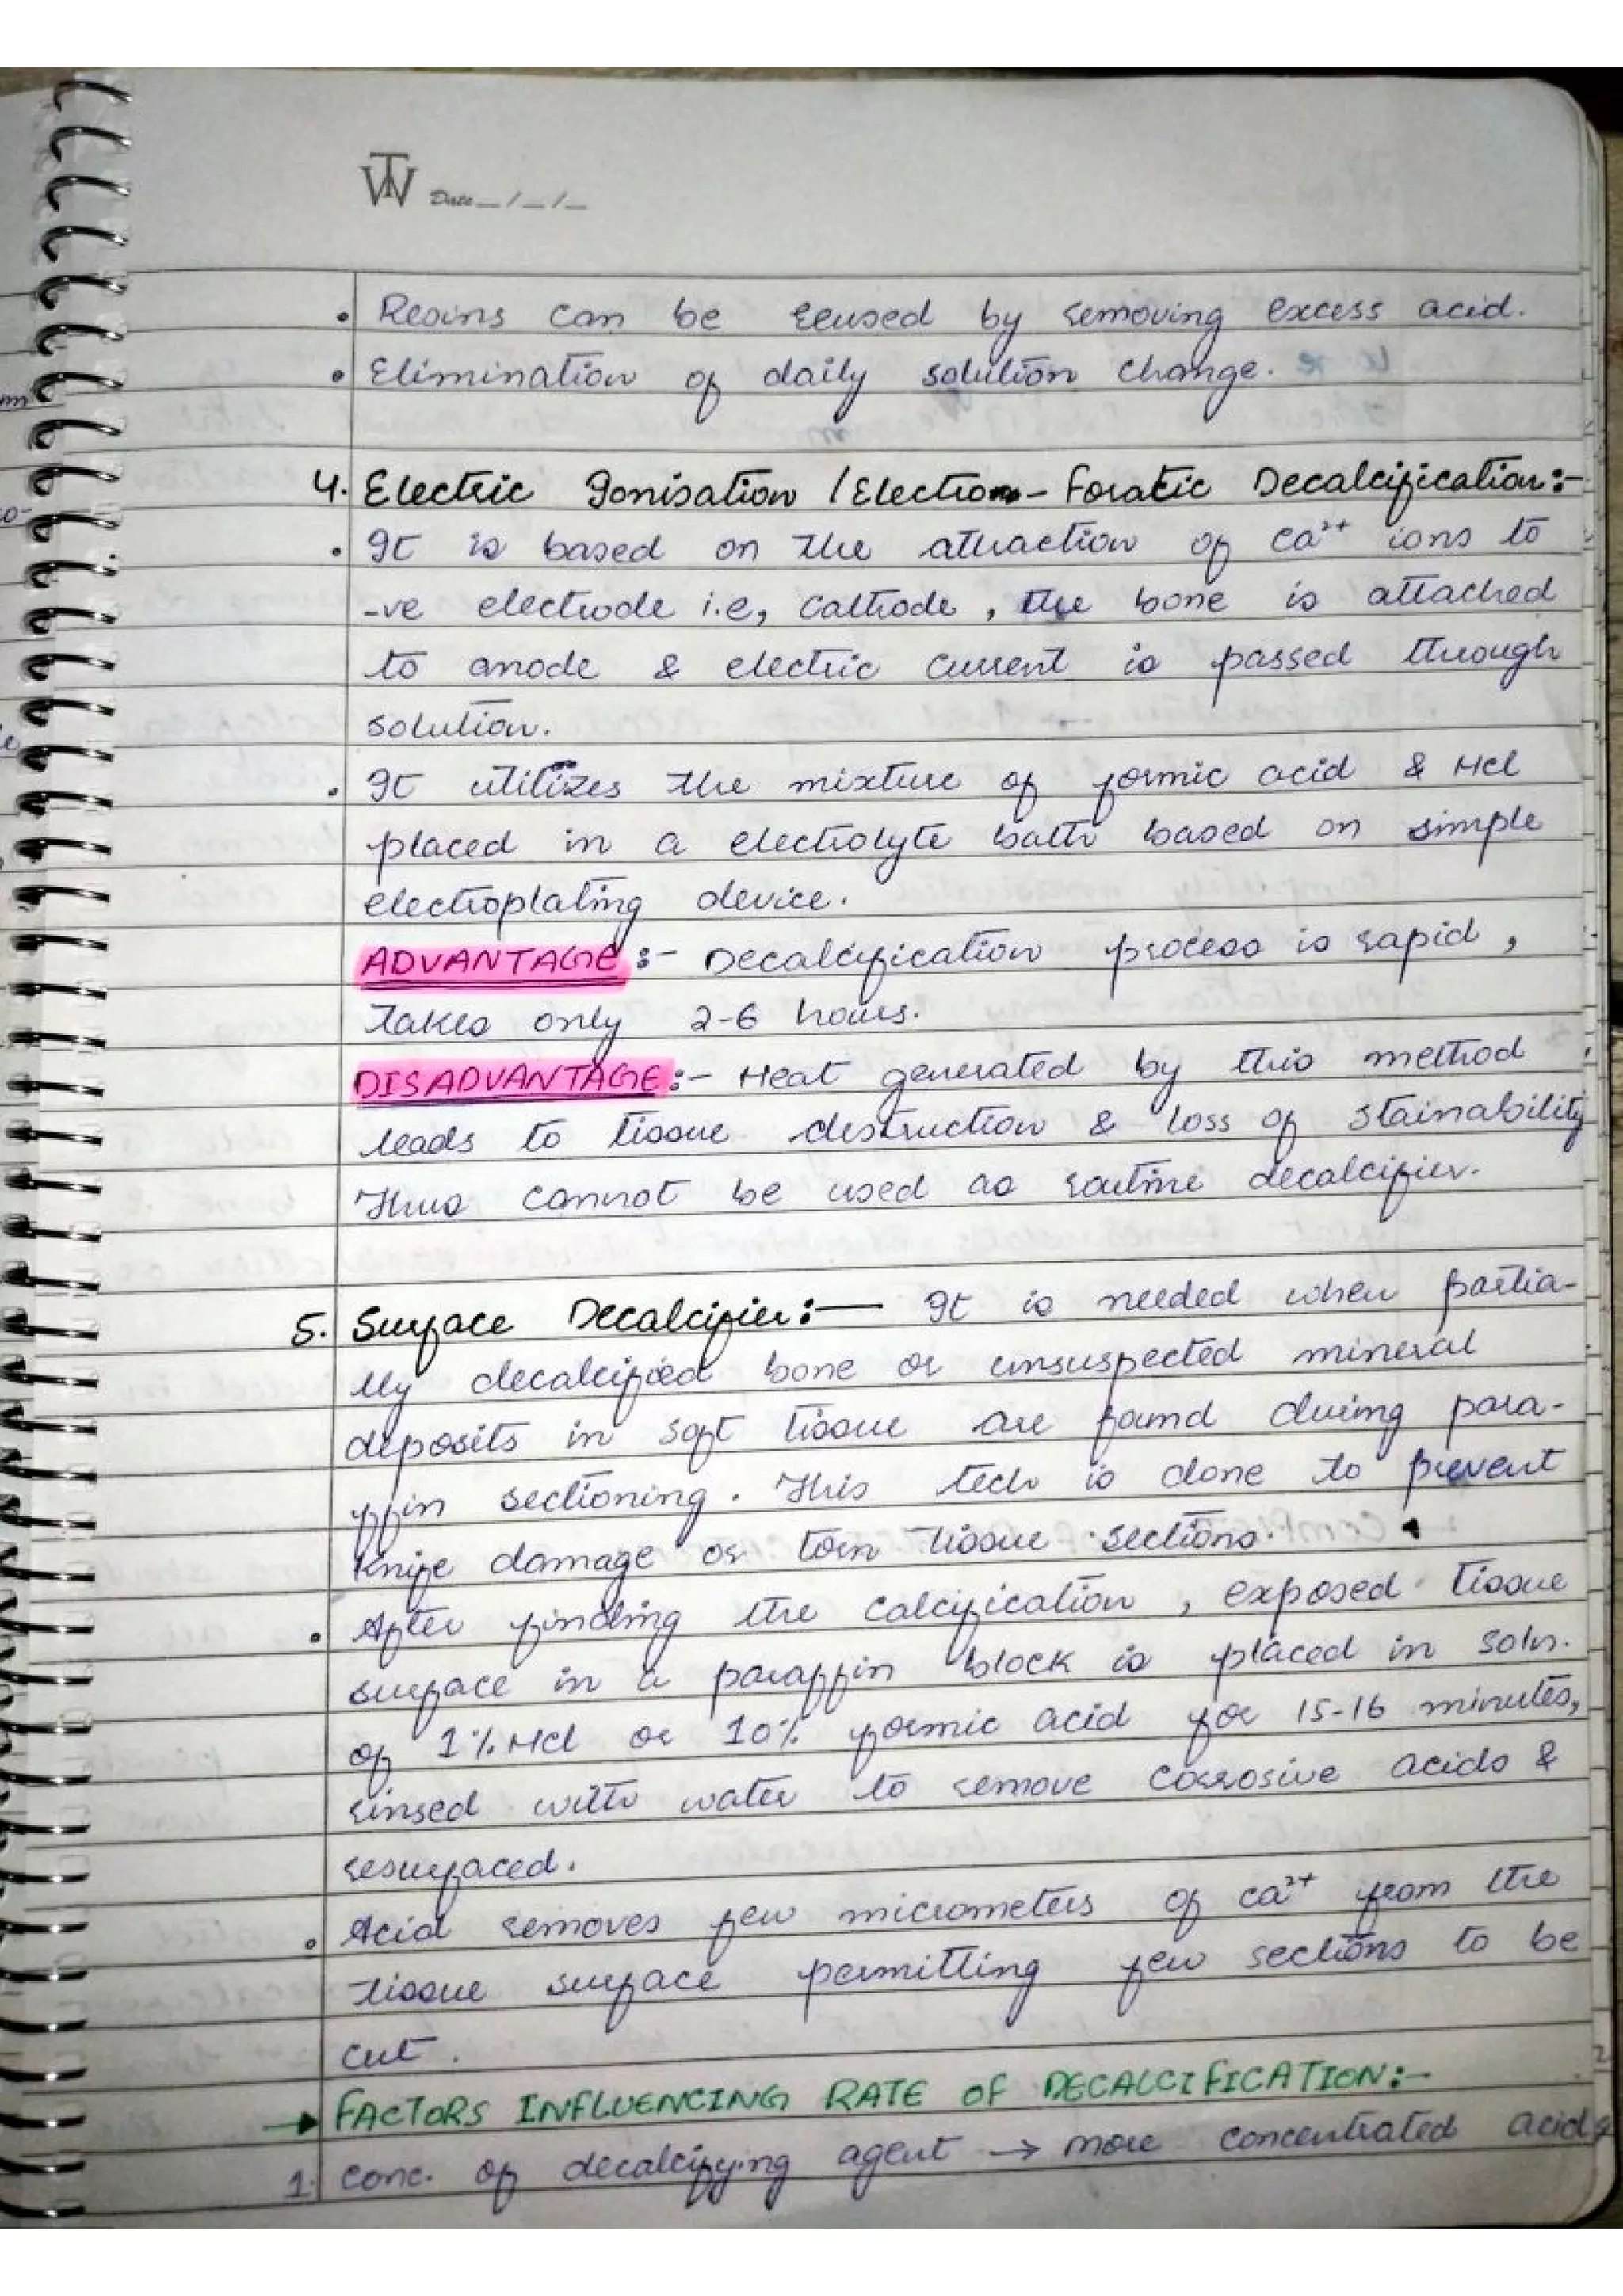 TW Date__/__/__
• Resins can be reused by removing excess acid.
• Elimination of daily solution change.
4. Electric Ionisation / Electron-Foratic Decalcification:-
• It is based on the attraction of Ca²⁺ ions to
-ve electrode i.e, Cathode, the bone is attached
to anode & electric current is passed through
solution.
• It utilizes the mixture of formic acid & HCl
placed in a electrolyte bath based on simple
electroplating device.
ADVANTAGE:- Decalcification process is rapid,
takes only 2-6 hours.
DISADVANTAGE:- Heat generated by this method
leads to tissue destruction & loss of stainability
Thus cannot be used as routine decalcifier.
5. Surface Decalcifier:— It is needed when partia-
lly decalcified bone or unsuspected mineral
deposits in soft tissue are found during para-
ffin sectioning. This tech is done to prevent
knife damage or torn tissue sections.
• After finding the calcification, exposed tissue
surface in a paraffin block is placed in soln.
of 1% HCl or 10% formic acid for 15-16 minutes,
rinsed with water to remove corrosive acids &
resurfaced.
• Acid removes few micrometers of Ca²⁺ from the
tissue surface permitting few sections to be
cut.
→ FACTORS INFLUENCING RATE OF DECALCIFICATION:-
1. Conc. of decalcifying agent → more concentrated acids